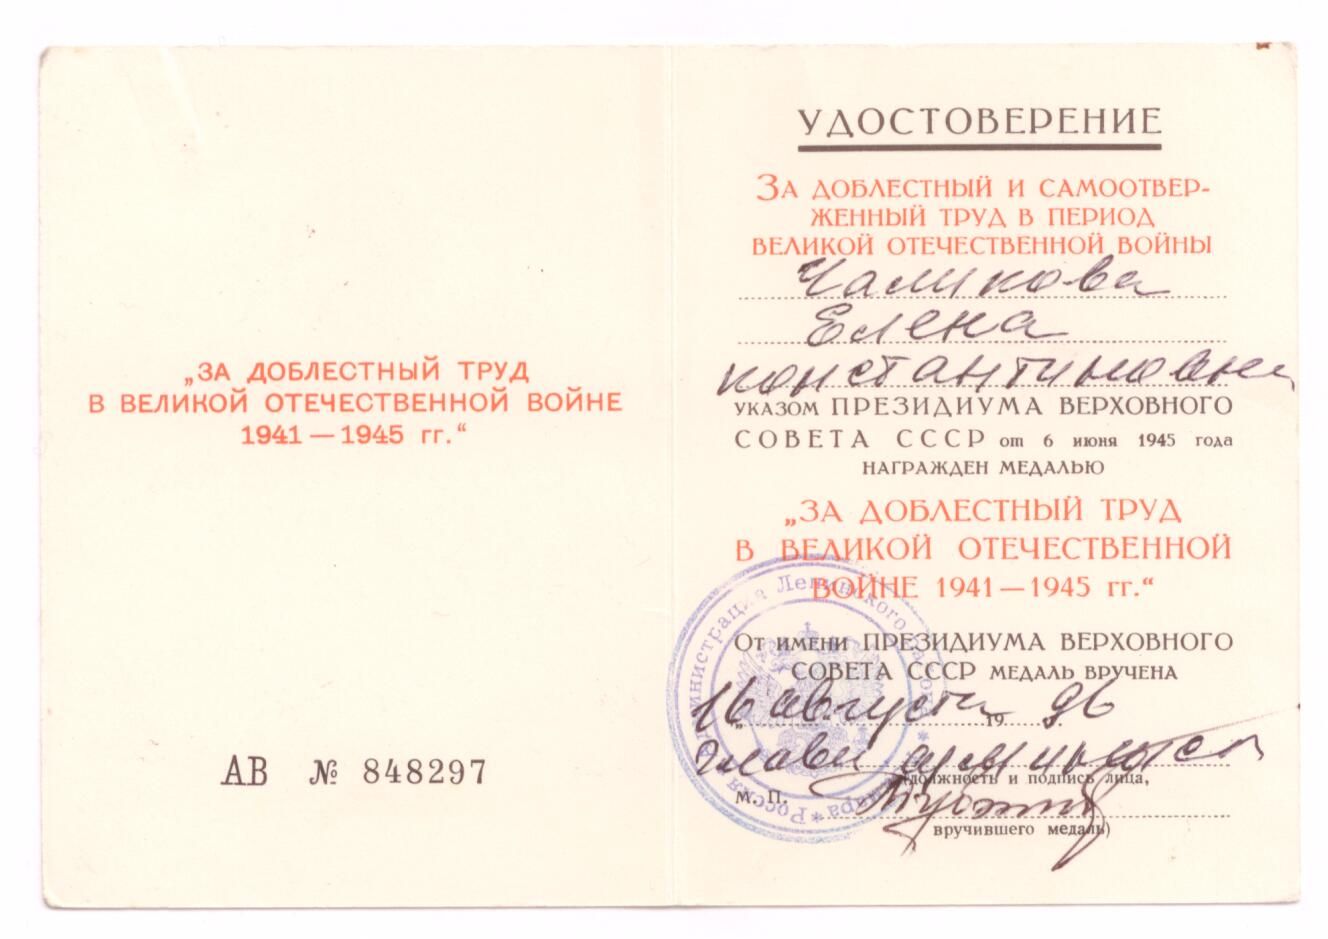 „ЗА ДОБЛЕСТНЫЙ ТРУД
В ВЕЛИКОЙ ОТЕЧЕСТВЕННОЙ ВОЙНЕ
1941 — 1945 гг.“
АВ № 848297
УДОСТОВЕРЕНИЕ
ЗА ДОБЛЕСТНЫЙ И САМООТВЕР-
ЖЕННЫЙ ТРУД В ПЕРИОД
ВЕЛИКОЙ ОТЕЧЕСТВЕННОЙ ВОЙНЫ
Чаликова
Елена
Константиновна
УКАЗОМ ПРЕЗИДИУМА ВЕРХОВНОГО
СОВЕТА СССР от 6 июня 1945 года
НАГРАЖДЕН МЕДАЛЬЮ
„ЗА ДОБЛЕСТНЫЙ ТРУД
В ВЕЛИКОЙ ОТЕЧЕСТВЕННОЙ
ВОЙНЕ 1941 — 1945 гг.“
ОТ ИМЕНИ ПРЕЗИДИУМА ВЕРХОВНОГО
СОВЕТА СССР МЕДАЛЬ ВРУЧЕНА
„16 августа 19 96
Глава
(должность и подпись лица,
М. П.
вручившего медаль)
Администрация Ленинского района * Самара * Россия